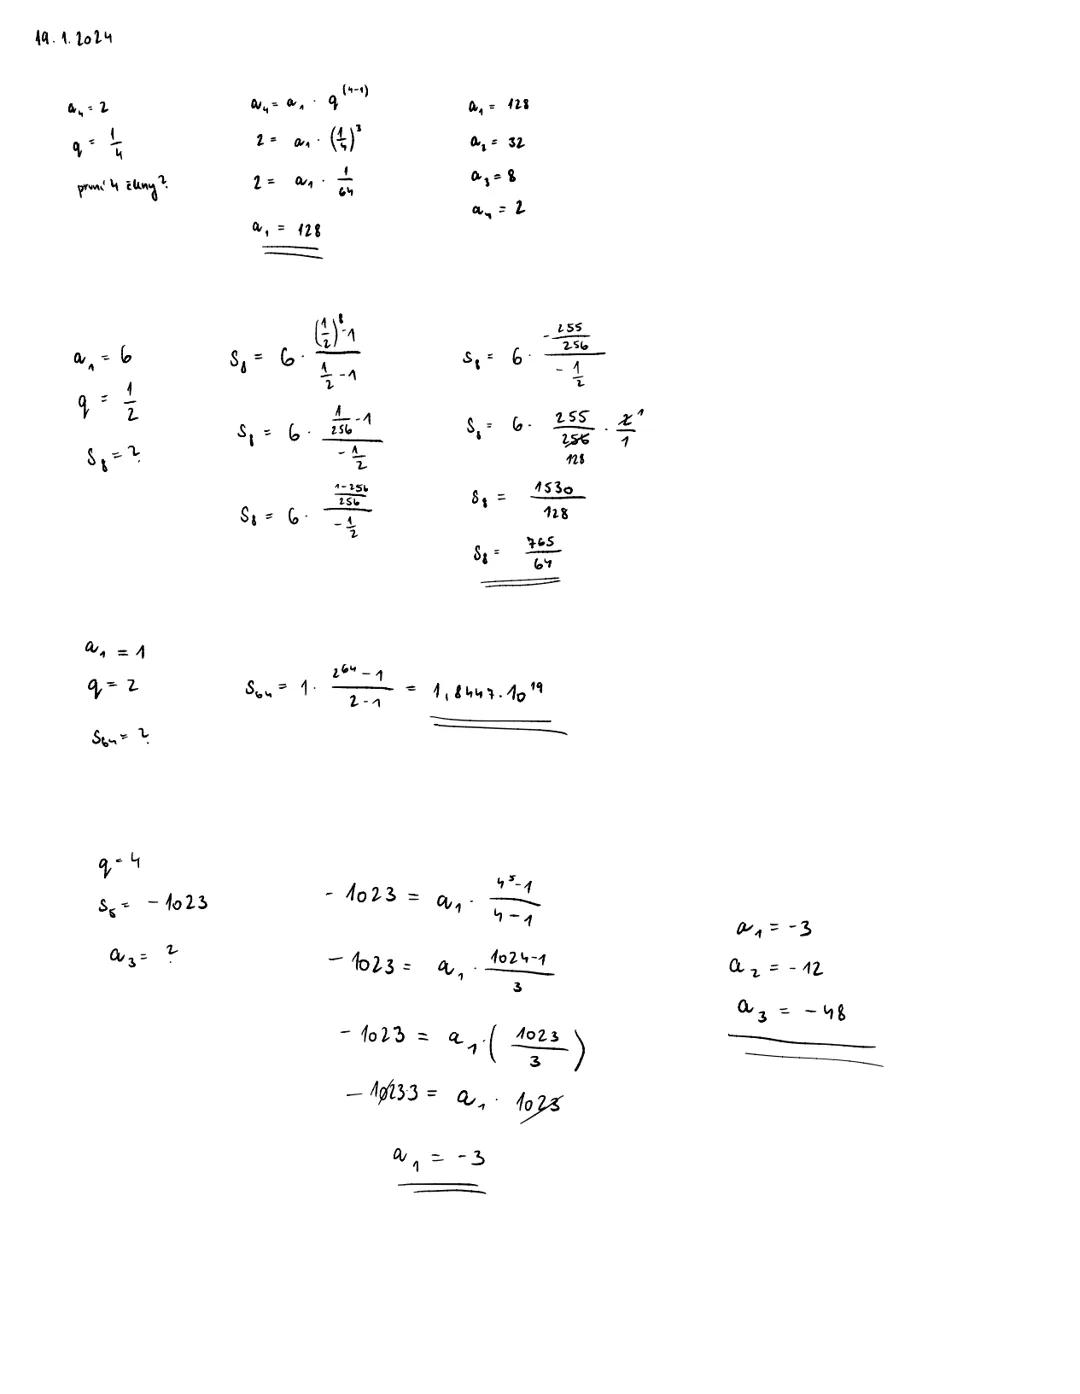 19.1.2024
a₄ = 2
q = 1/4
první 4 členy?
a₄ = a₁ · q^(4-1)
2 = a₁ · (1/4)³
2 = a₁ · 1/64
a₁ = 128
a₁ = 128
a₂ = 32
a₃ = 8
a₄ = 2
a₁ = 6
q = 1/2
S₈ = ?
S₈ = 6 · ((1/2)⁸-1)/(1/2 - 1)
S₈ = 6 · (1/256 - 1)/(-1/2)
S₈ = 6 · ((1-256)/256)/(-1/2)
S₈ = 6 · (-255/256)/(-1/2)
S₈ = 6 · 255/256 · 2/1 1
128
S₈ = 1530/128
S₈ = 765/64
a₁ = 1
q = 2
S₆₄ = ?
S₆₄ = 1 · (2⁶⁴ - 1)/(2 - 1) = 1,8447.10¹⁹
q = 4
S₅ = -1023
a₃ = ?
-1023 = a₁ · (4⁵-1)/(4-1)
-1023 = a₁ · (1024-1)/3
-1023 = a₁ · (1023/3)
-1023·3 = a₁ · 1023
a₁ = -3
a₁ = -3
a₂ = -12
a₃ = -48